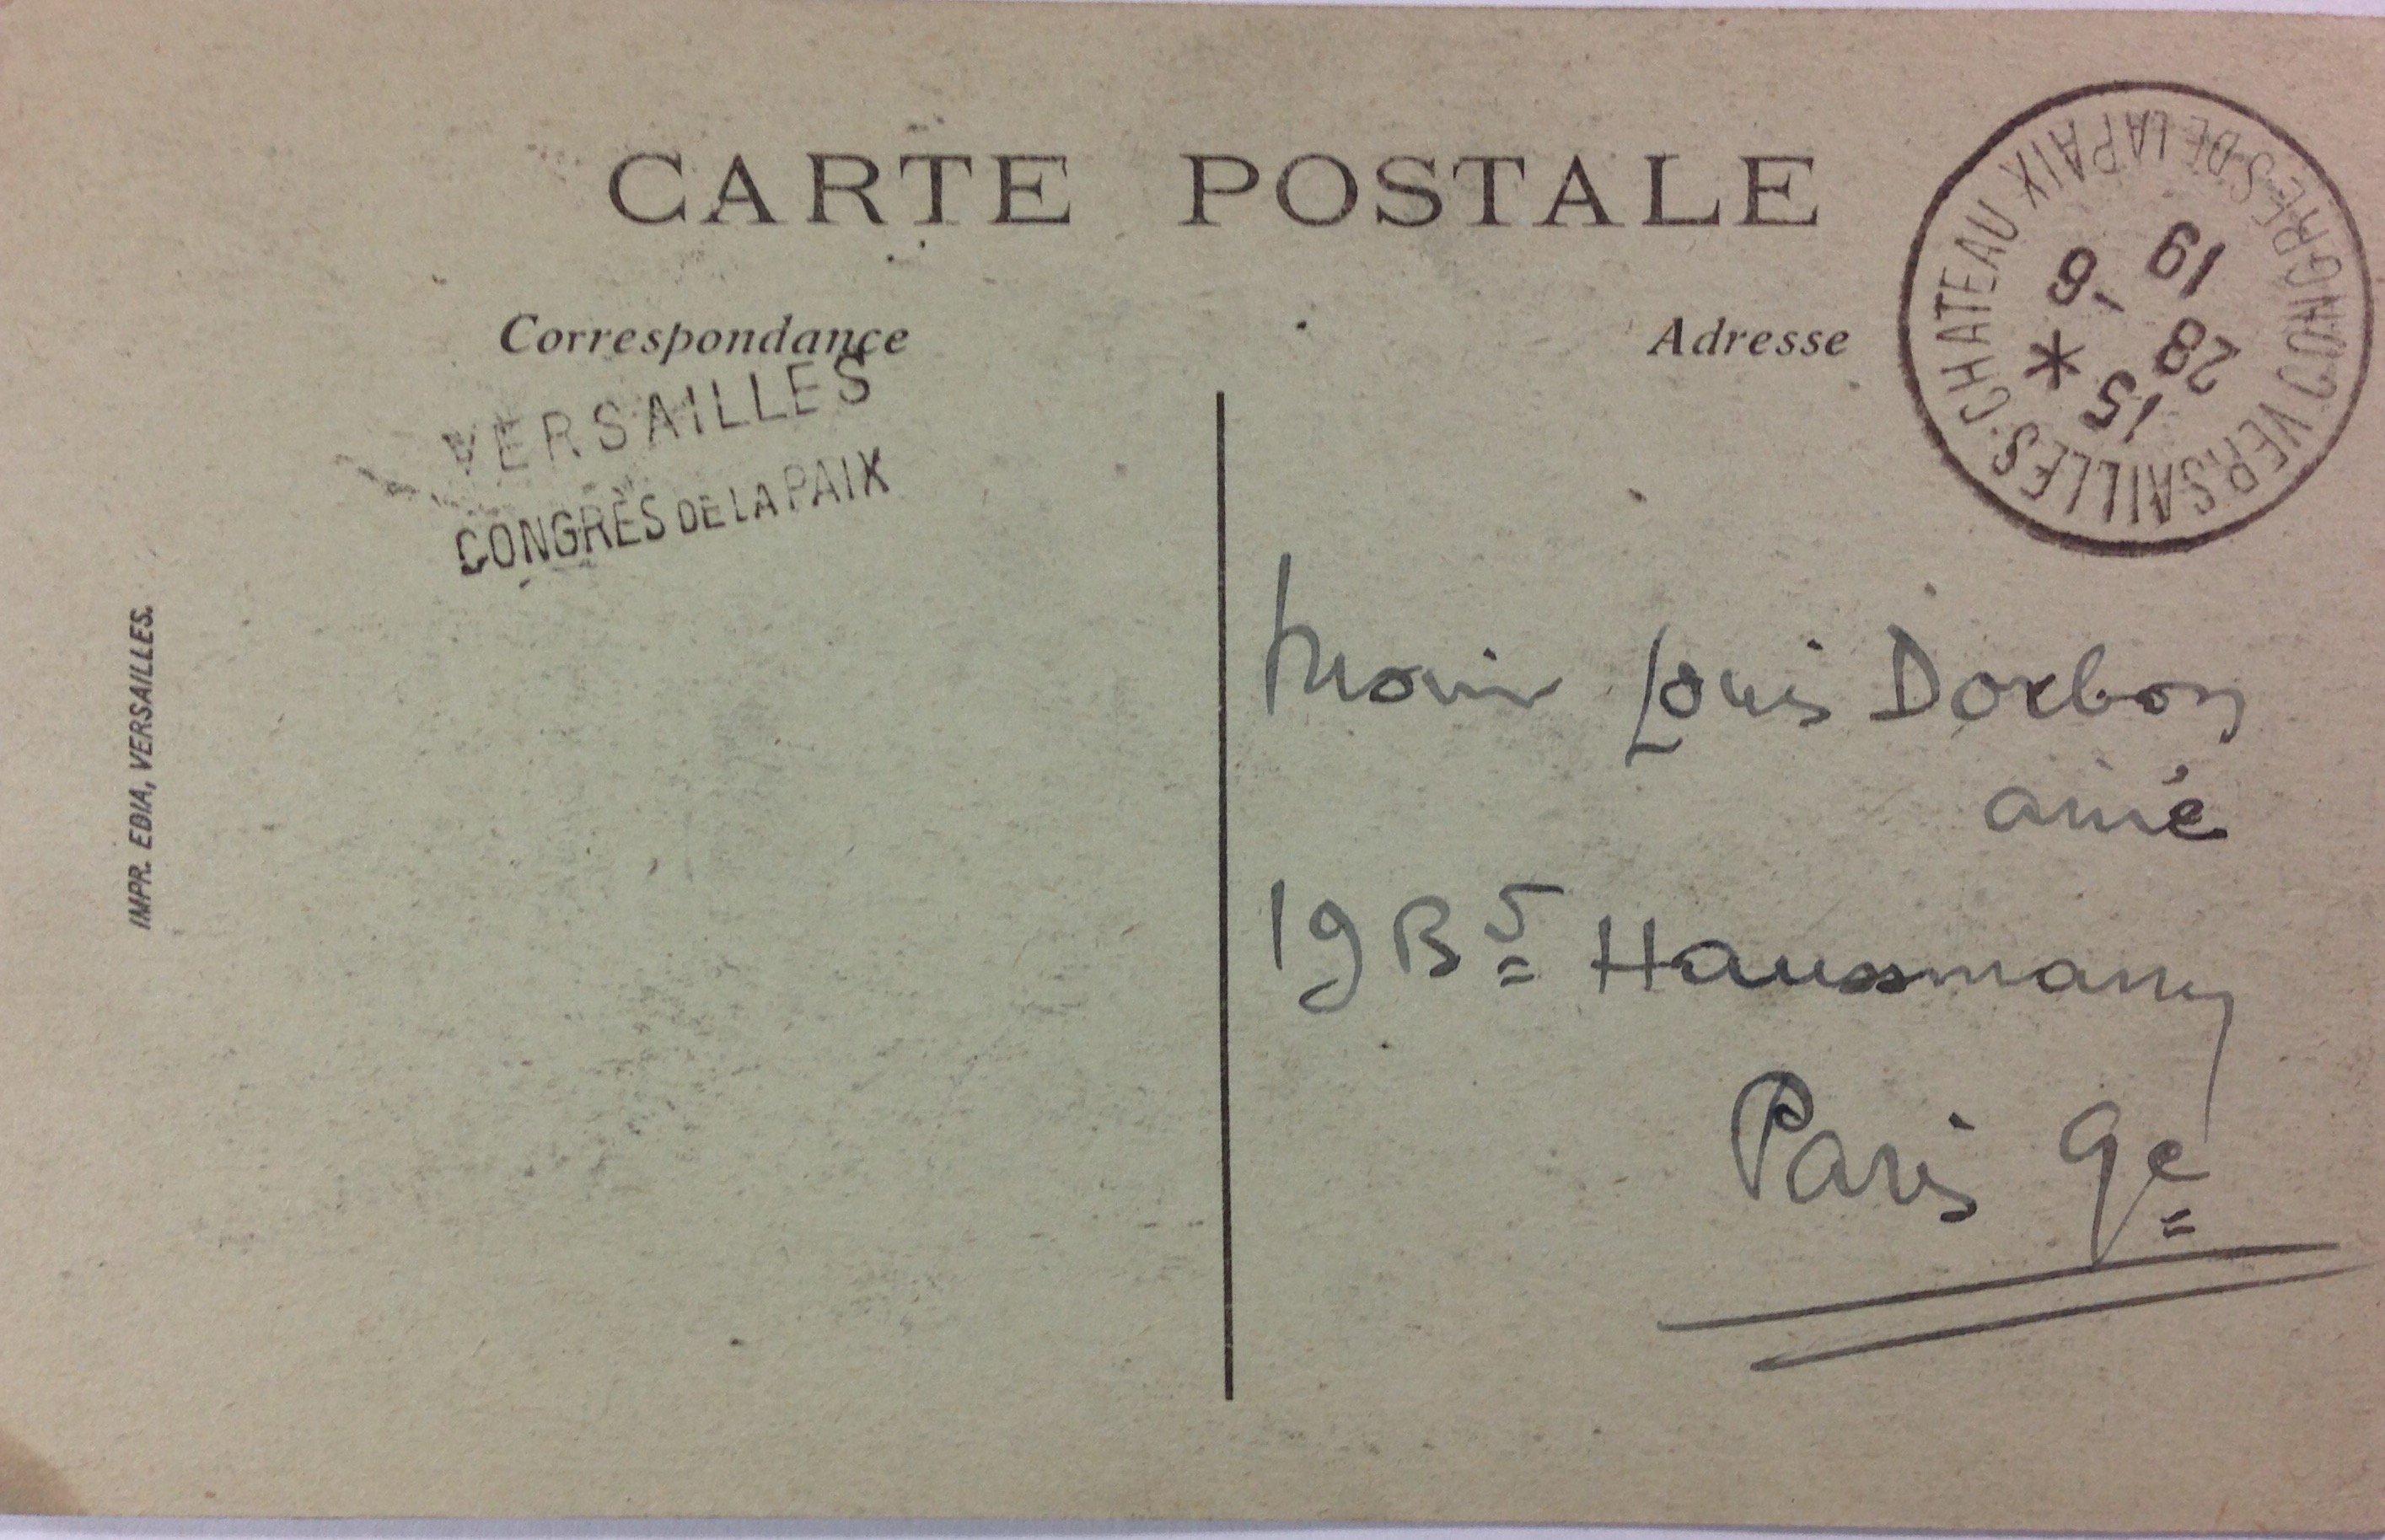 CARTE POSTALE
Correspondance
Adresse
VERSAILLES
CONGRÈS DE LA PAIX
VERSAILLES-CHATEAU
CONGRES DE LA PAIX
15 *
28 -6
19
Louis Dorbon
ainé
19 Bd Haussmann
Paris 9e
IMPR. EDIA, VERSAILLES.